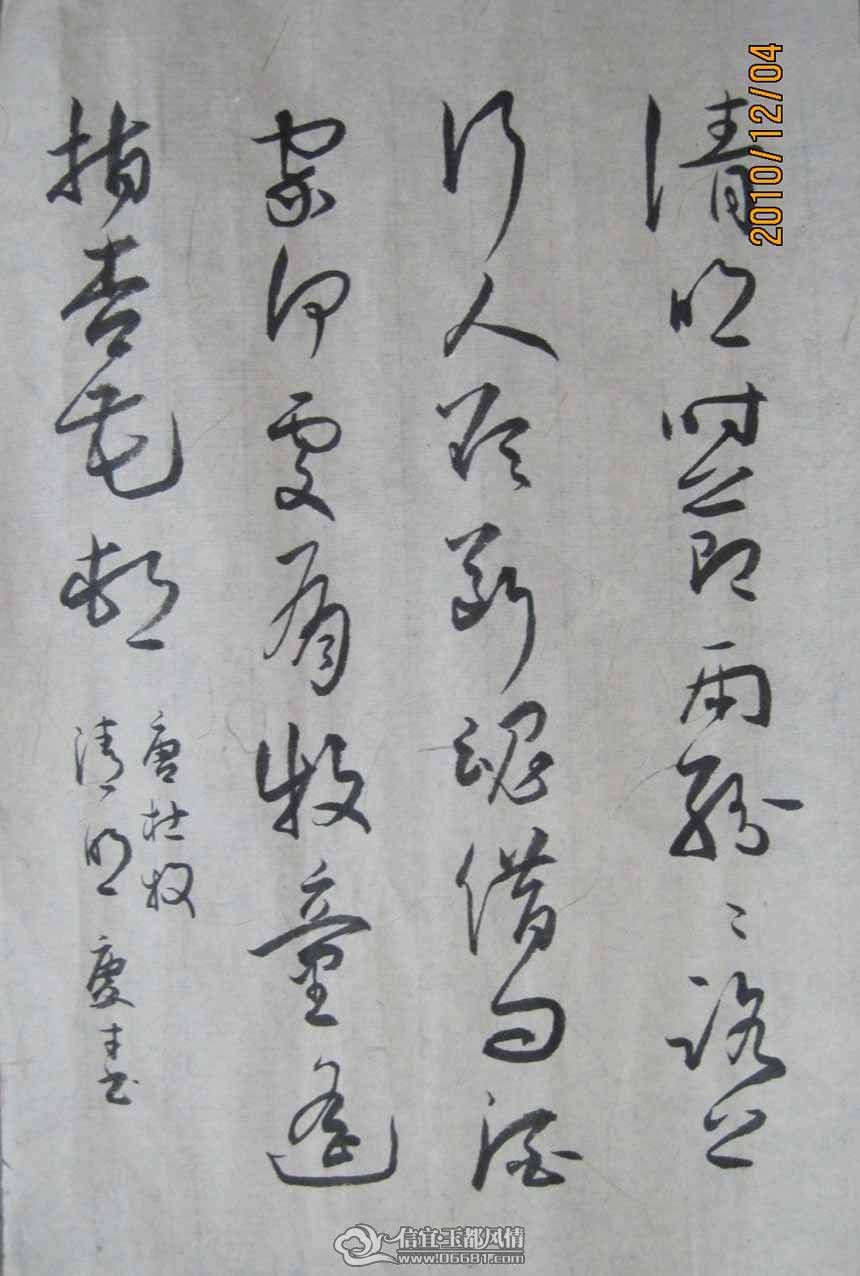 清明时節雨紛〻路上
行人欲断魂借问酒
家何處有牧童遥
指杏花邨
唐杜牧
清明 慶書
2010/12/04
信宜玉都风情
www.06681.com